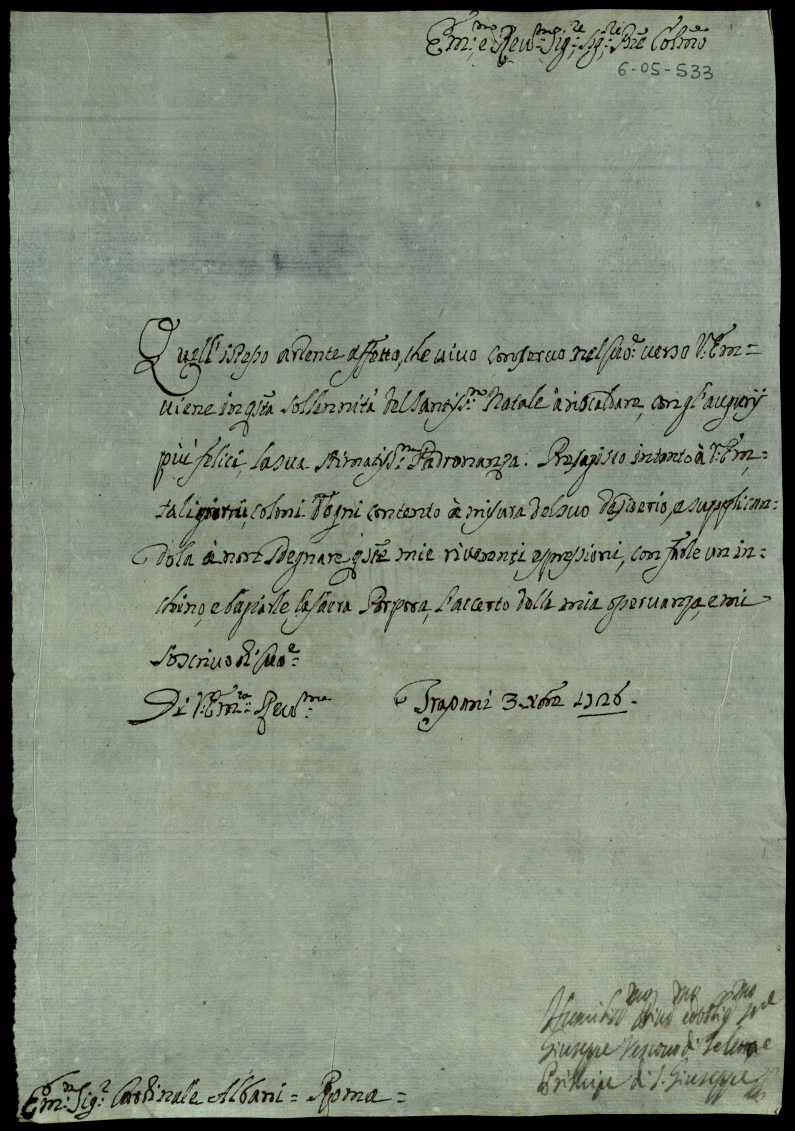 Em.mo e Rev.mo Sig.re Sig.re P̃ne Colmo
6-05-533
Quell'istesso ardente affetto, che vivo conservo nel suo.e verso V. Em=
viene in q̃sta sollennità del Santiss.mo Natale à riscaldare, con gl'augurÿ
più felici, la sua stimatiss.ma Padronanza. Presagisco intanto à V. Em.=
tali giorni, colmi d'ogni contento à misura del suo desiderio, e supplican=
dola à non sdegnare q̃ste mie riverenti espressioni, con farle un in=
chino, e baciarle la sacra Porpora, l'accerto della mia osservanza, e mi
soscrivo di cuo.e
Di V. Em.za Rev.ma Trapani 3 Xbre 1726.
Humiliss.mo Div.mo ed obblig.mo
Giuseppe di
Principe di S. Giuseppe
Em.mo Sig.r Cardinale Albani = Roma =